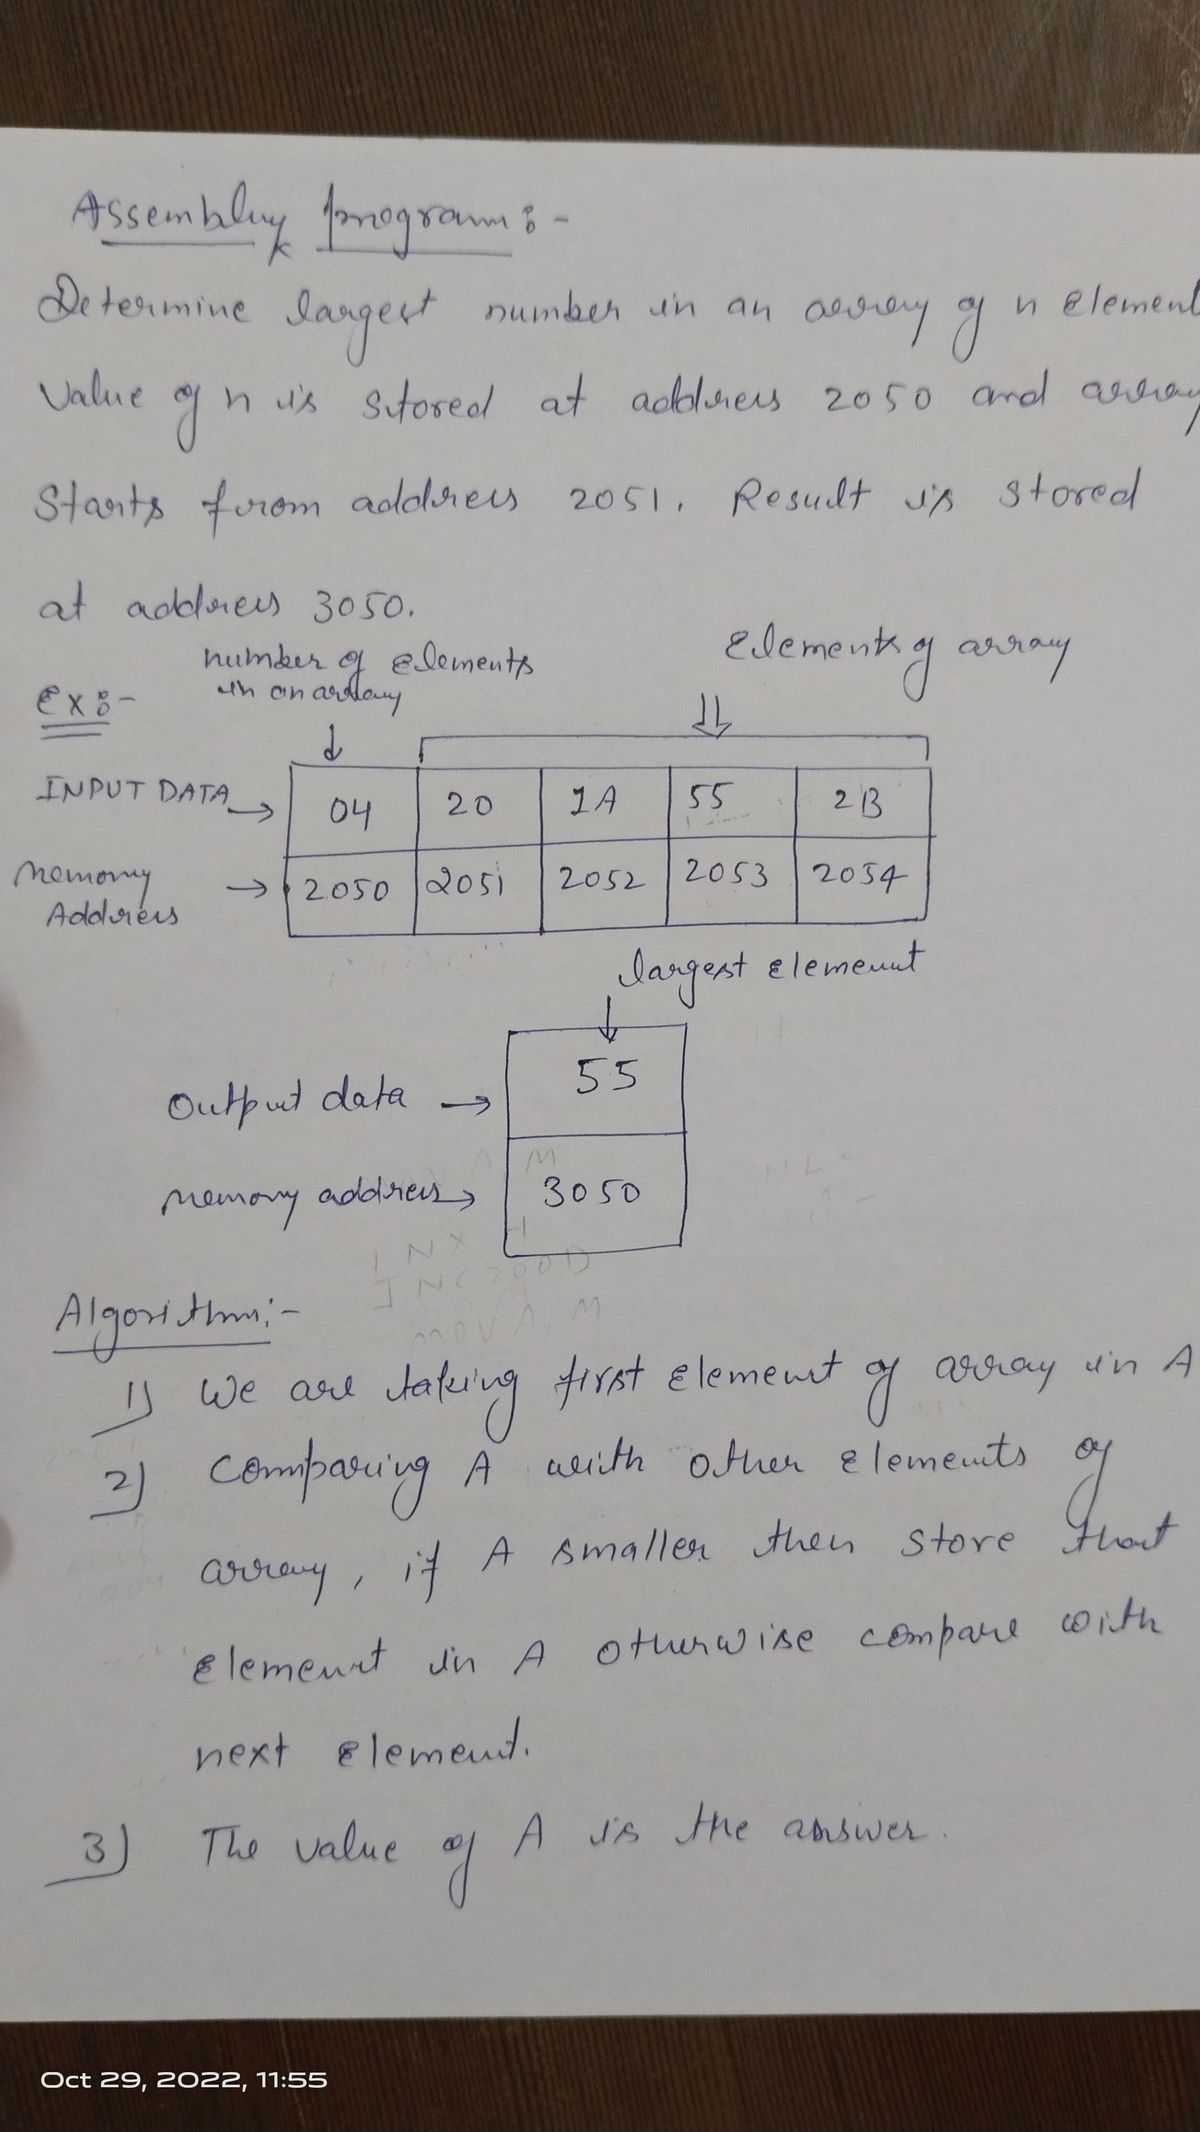 Assembly program:-
Determine largest number in an array of n element
Value of n is stored at address 2050 and array
Starts from address 2051. Result is stored
at address 3050.
number of elements
in an array
Elements of array
Ex:-
INPUT DATA → 04 20 1A 55 2B
Memory Address → 2050 2051 2052 2053 2054
largest element
Output data → 55
Memory address → 3050
M
INX H
MOV A M
Algorithm:-
1) We are taking first element of array in A
2) Comparing A with other elements of
array, if A smaller then store that
element in A otherwise compare with
next element.
3) The value of A is the answer.
Oct 29, 2022, 11:55